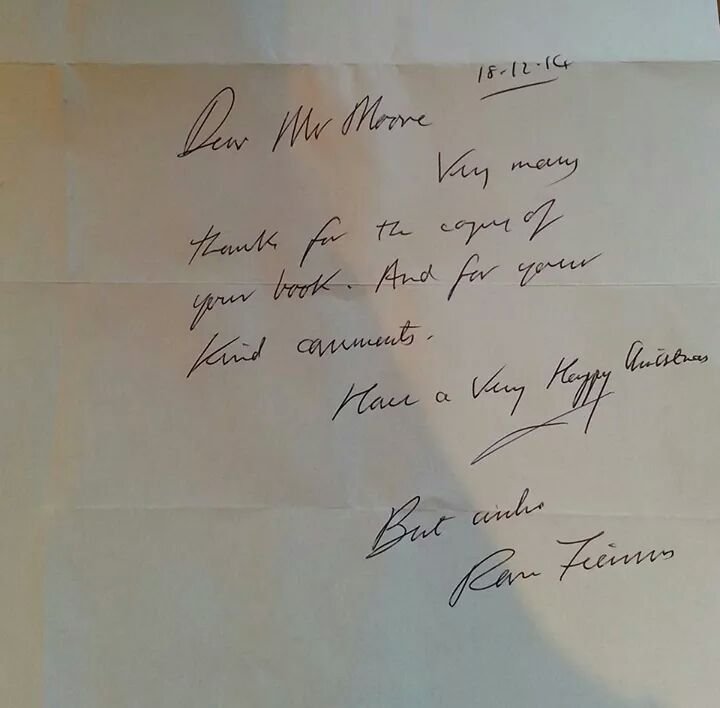 18-12-14
Dear Mr Moore
Very many
thanks for the copy of
your book. And for your
kind comments.
Have a Very Happy Christmas
Best wishes
Ran Fiennes